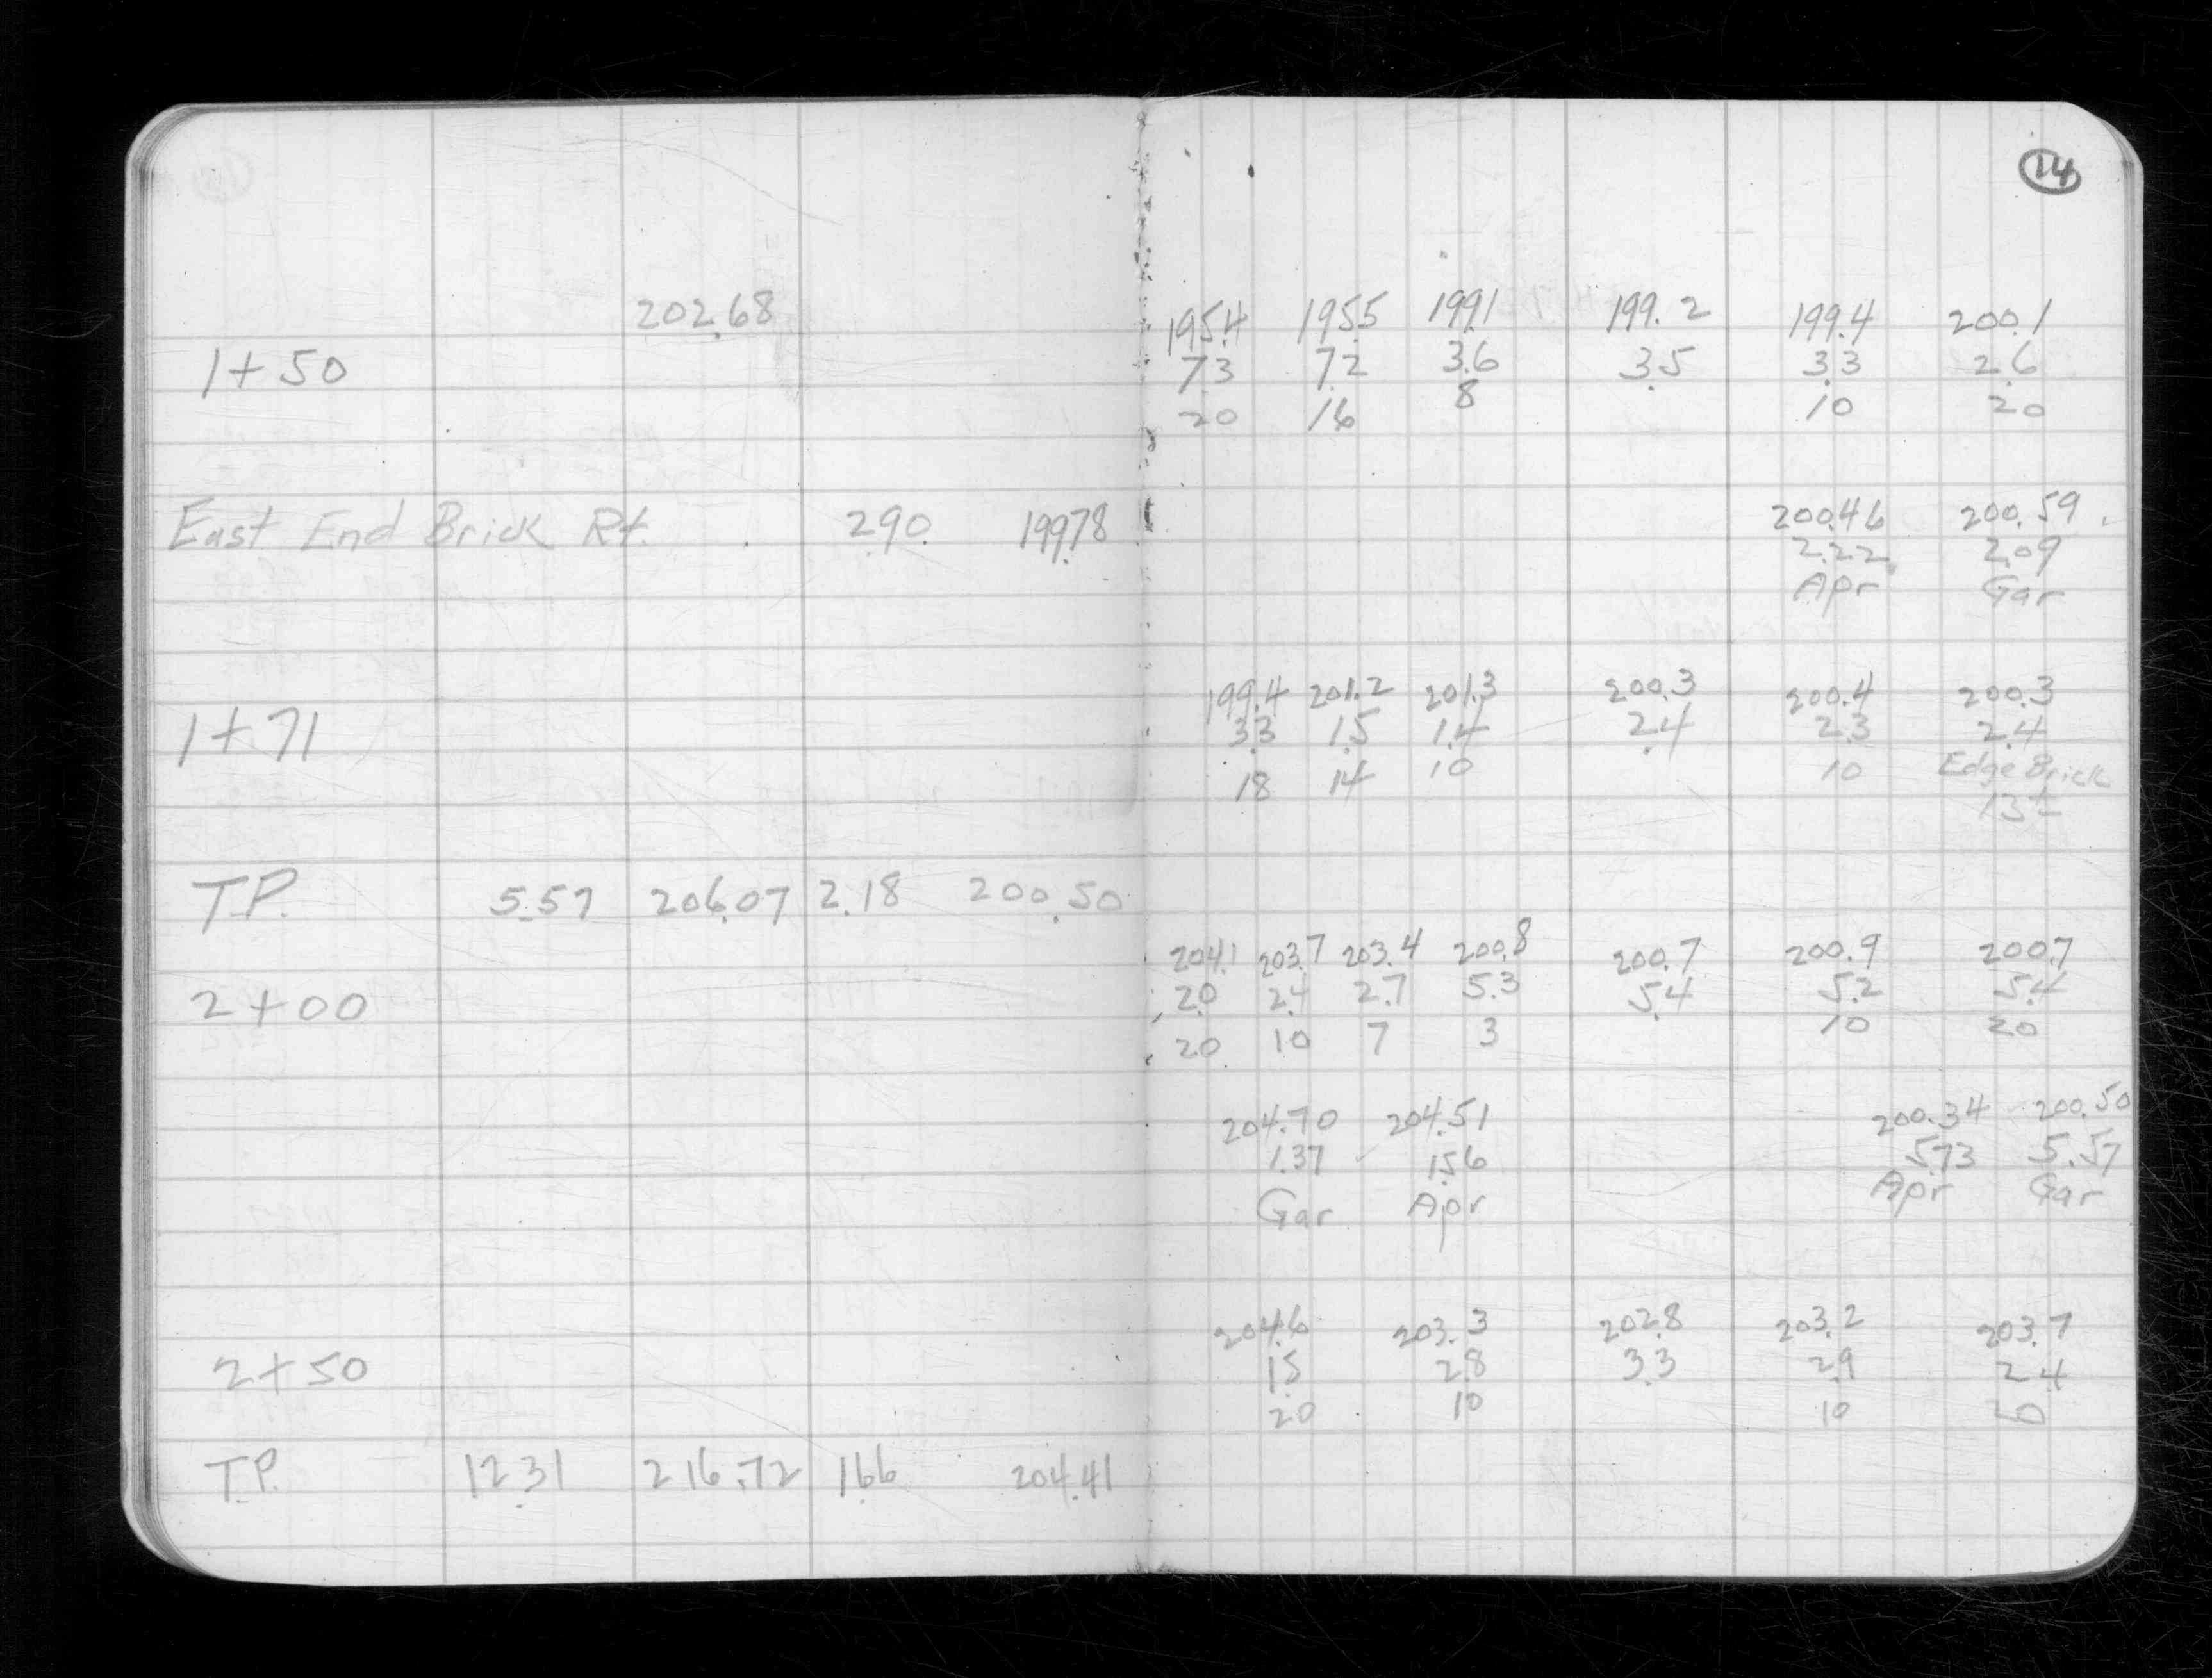 14
202.68
195.4 195.5 199.1 199.2 199.4 200.1
1+50 7.3 7.2 3.6 3.5 3.3 2.6
20 16 8 10 20
200.46 200.59
East End Brick Rt. 2.90 199.78 2.22 2.09
Apr Gar
199.4 201.2 201.3 200.3 200.4 200.3
1+71 3.3 1.5 1.4 2.4 2.3 2.4
18 14 10 10 Edge Brick
13±
T.P. 5.57 206.07 2.18 200.50
204.1 203.7 203.4 200.8 200.7 200.9 200.7
2+00 2.0 2.4 2.7 5.3 5.4 5.2 5.4
20 10 7 3 10 20
204.70 204.51 200.34 200.50
1.37 1.56 5.73 5.57
Gar Apr Apr Gar
204.6 203.3 202.8 203.2 203.7
2+50 1.5 2.8 3.3 2.9 2.4
20 10 10 20
T.P. 12.31 216.72 1.66 204.41